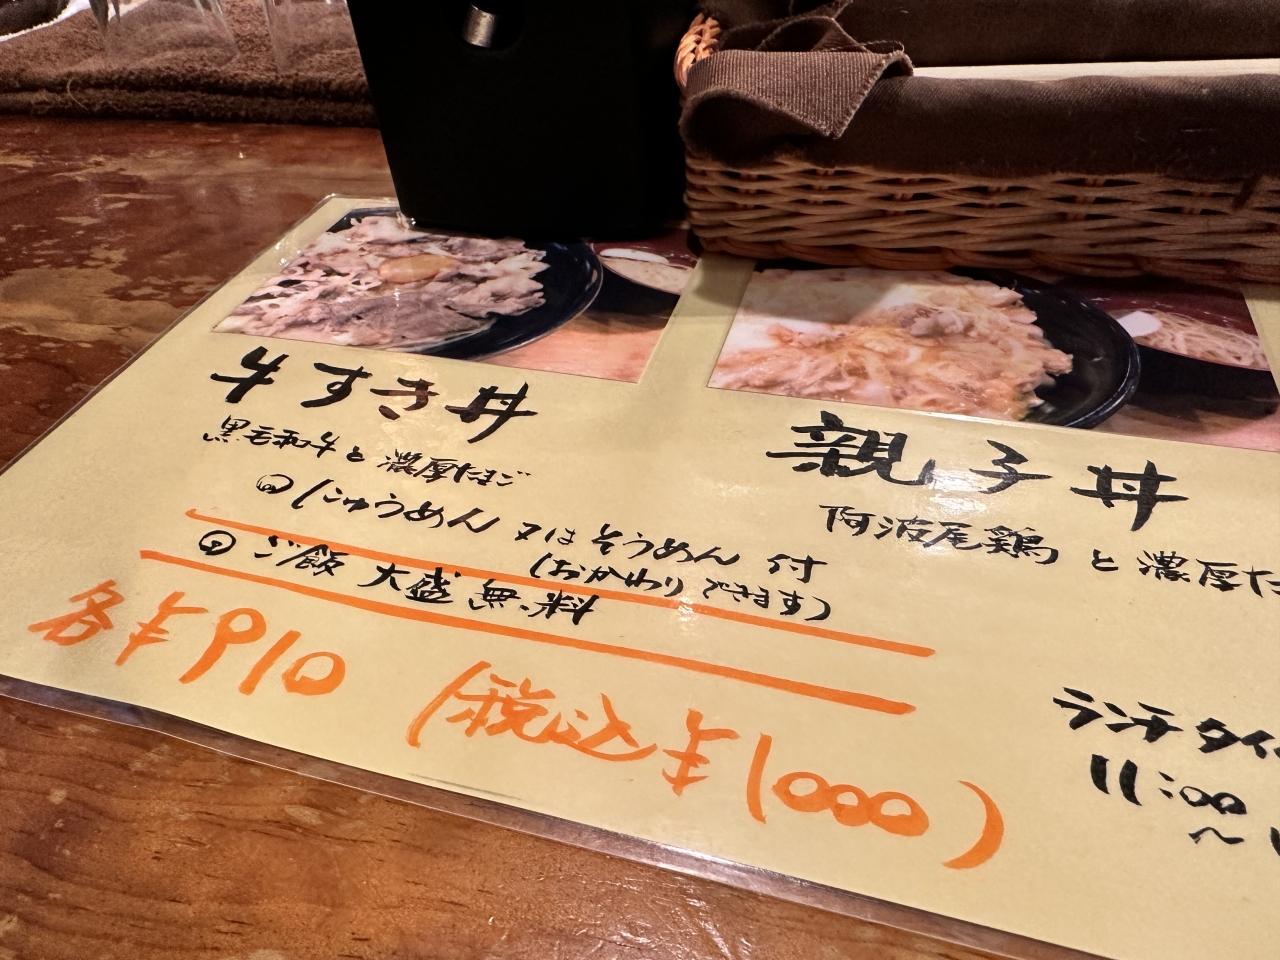 牛すき丼
黒毛和牛と濃厚たまご
親子丼
阿波尾鶏と濃厚た
にゅうめん又はそうめん付
(おかわりできます)
ご飯大盛無料
各¥910(税込¥1000)
ランチタイ
11:00
～